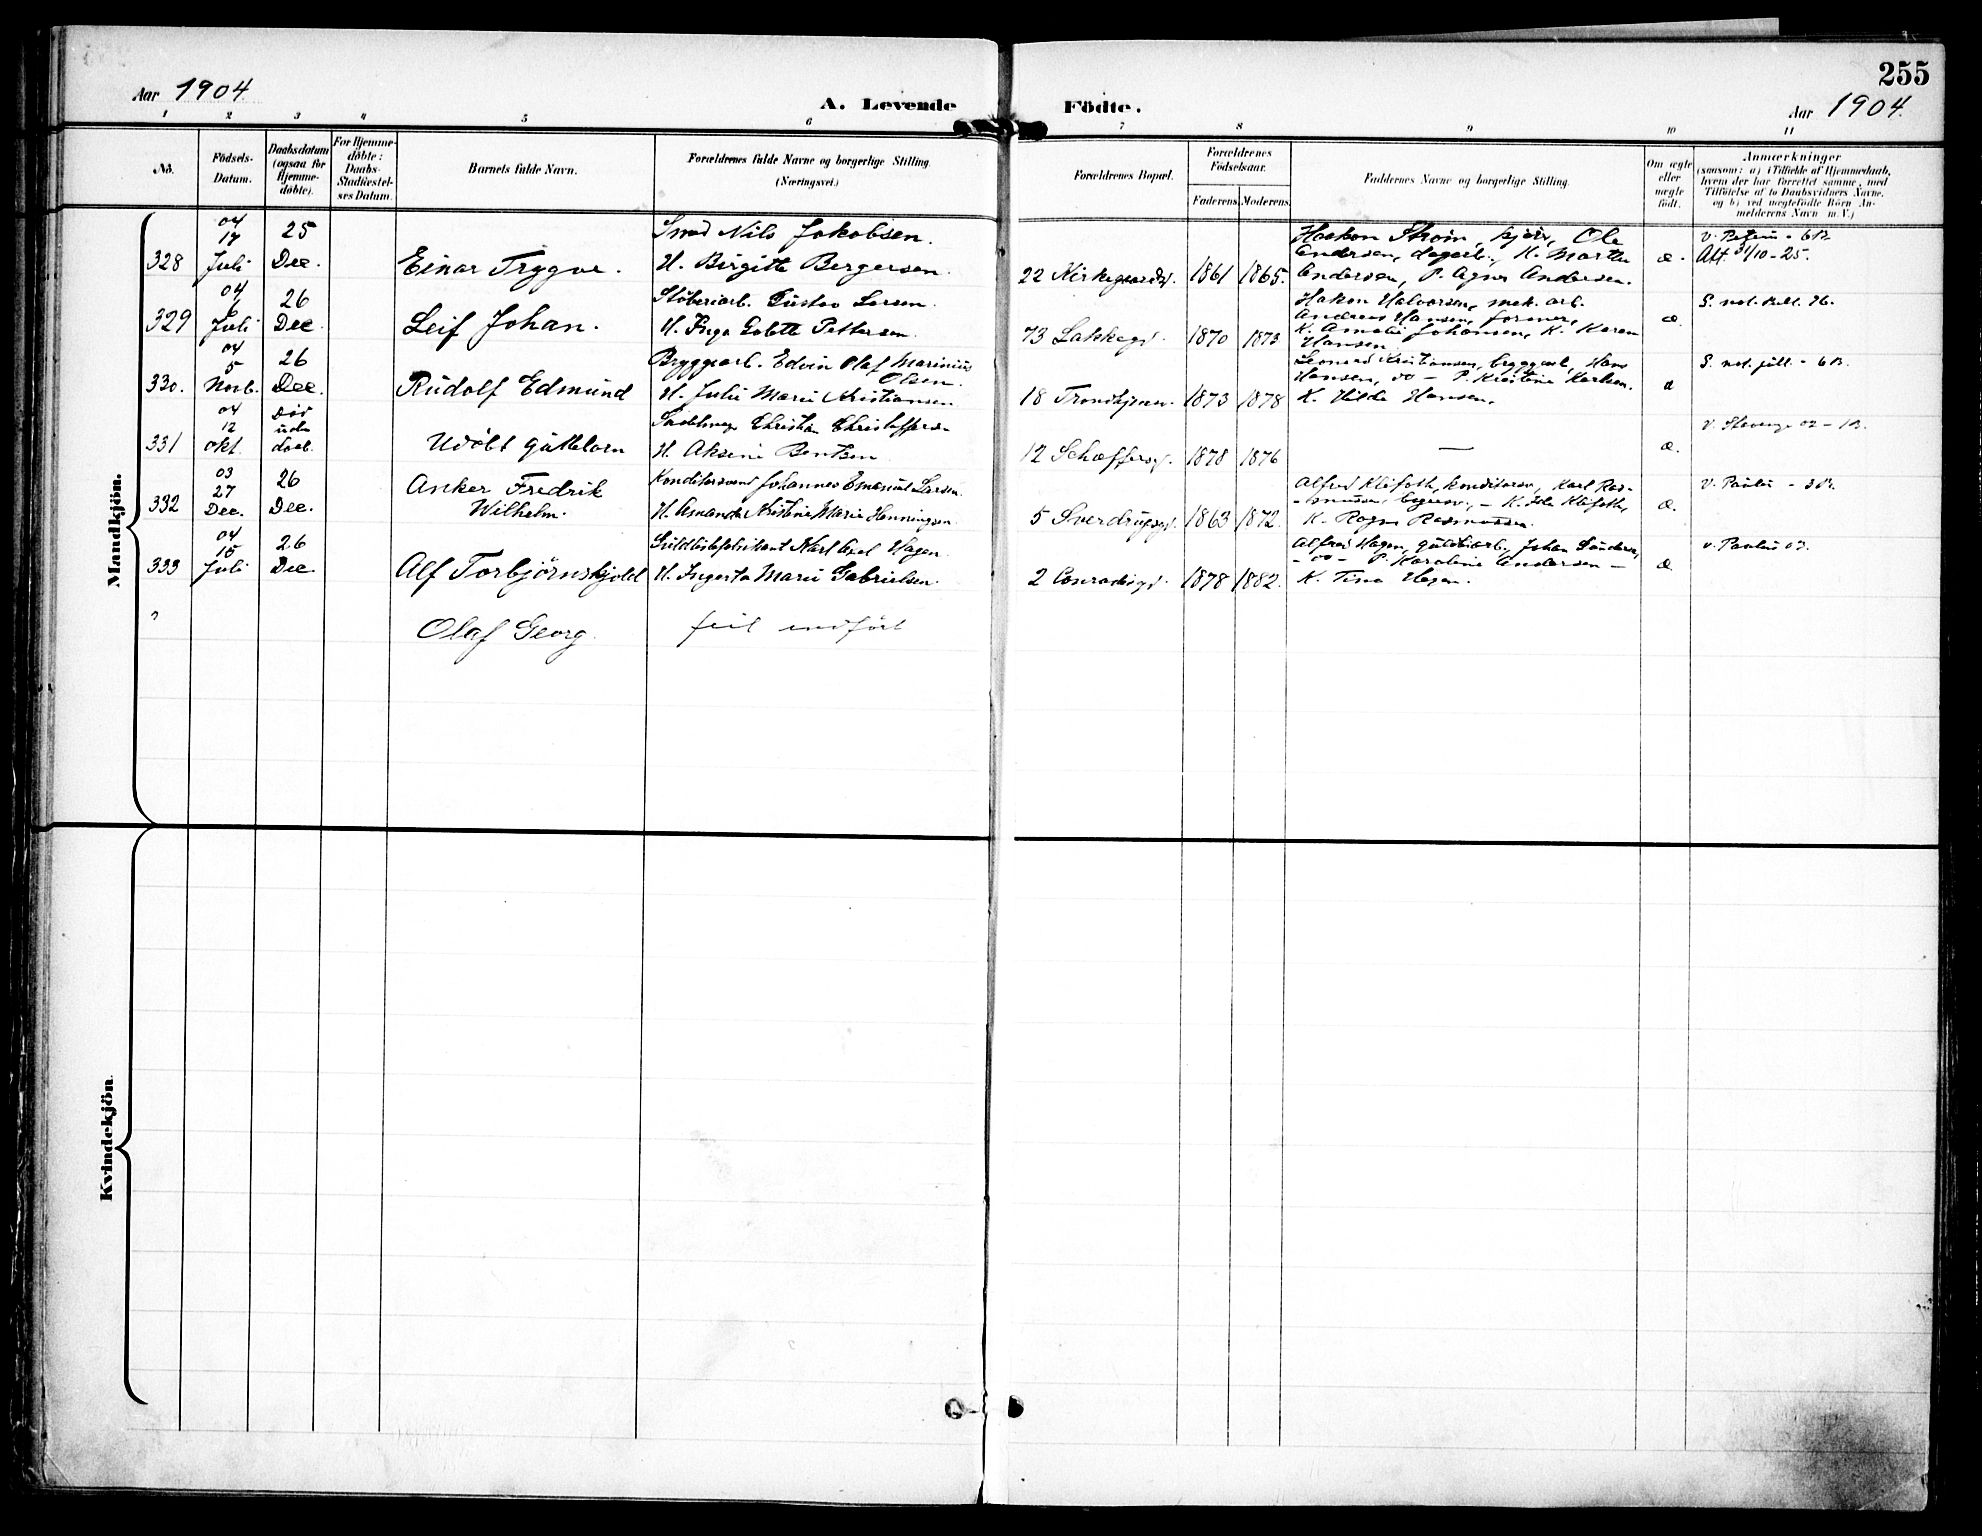 255
Aar 1904
A. Levende Födte.
Aar 1904.
1 2 3 4 5 6 7 8 9 10 11
No. Födsels-Datum. Daabsdatum (ogsaa for Hjemme-döbte). For Hjemme-döbte: Daabs-Stadfæstel-ses Datum. Barnets fulde Navn. Forældrenes fulde Navne og borgerlige Stilling. (Næringsvei.) Forældrenes Bopæl. Forældrenes Födselsaar. Faderens. Moderens. Faddernes Navne og borgerlige Stilling. Om ægte eller uægte födt. Anmærkninger
(saasom: a) i Tilfælde af Hjemmedaab,
hvem der har forrettet samme, med
Tilföielse af to Daabsvidners Navne,
og b) ved uægtefödte Börn An-
melderens Navn m. V.)
Mandkjön.
328 04 17 Juli 25 Dec. Einar Trygve.
Smed Nils Jakobsen.
H. Birgitte Bergersen.
22 Kirkegaardsg. 1861 1865.
Haakon Strøm, kjør, Ole
Andersen, dagarb., K. Marthe
Andersen, P. Agnes Andersen.
æ.
V. Petrus - 6 B.
Att. 31/10 - 25.
329 04 6 Juli 26 Dec. Leif Johan.
Støberiarb. Gustav Larsen.
H. Inga Golette Pettersen
73 Lakkegd. 1870 1873
Hakon Halvorsen, mek. arb.
Andreas Hansen, former,
K. Amalie Johansen, K. Karen
Hansen
æ.
330. 04 5 Novb. 26 Dec. Rudolf Edmund
Bryggearb. Edvin Olaf Marinius
Olsen.
H. Julie Marie Kristiansen
18 Trondhjemsv. 1873 1878
Kristiansen, bryggearb., Hans
Hansen, do - P. Kristine Karlsen.
K. Hilda Hansen.
æ
331 04 12 Okt. Død uden daab. Udøbt guttebarn
Christian Christoffersen
H. Aksine Bentsen
12 Schæffersg. 1878 1876
—
æ.
332 03 27 Dec. 26 Dec. Anker Fredrik
Wilhelm.
Konditorsvend Johannes Emanuel Larsen.
H. Amanda Kristine Marie Henningsen
5 Sverdrupsg. 1863 1872.
Alfred Kleifoth, konditorsv., Karl Ras-
mussen, - K. Kleifoth,
K. Ragna Rasmussen.
æ.
V. Paulus - 3 B.
333 04 15 Juli 26 Dec. Alf Torbjørnskjold
Guldlistefabrikant Karl Axel Hagen
H. Ingerta Marie Gabrielsen.
2 Conradisgd. 1878 1882.
Alfred Hagen, Johan
- do - P. Karoline Andersen -
K. Tina Hagen.
æ.
V. Paulus 03.
? Olaf Georg. feil indført
Kvindekjön.